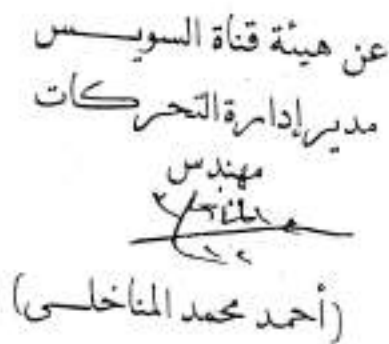 عن هيئة قناة السويس
مدير إدارة التحركات
مهندس
(أحمد محمد المناخلى)